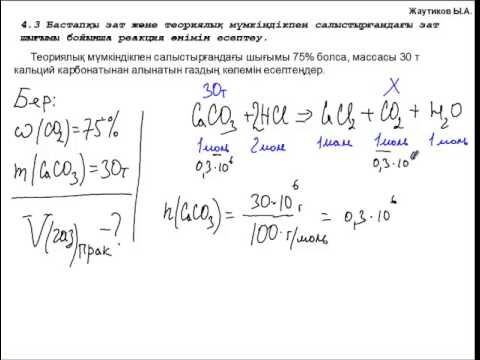 Жаутиков Ы.А.
4.3 Бастапқы зат және теориялық мүмкіндікпен салыстырғандағы зат
шығымы бойынша реакция өнімін есептеу.
Теориялық мүмкіндікпен салыстырғандағы шығымы 75% болса, массасы 30 т
кальций карбонатынан алынатын газдың көлемін есептеңдер.
Бер:
ω(CO₂)=75%
m(CaCO₃)=30т
V(газ)прак -?
30т X
CaCO₃+2HCl ⇒ CaCl₂ + CO₂ + H₂O
1моль 2моль 1моль 1моль 1моль
0,3·10⁶ 0,3·10⁶
n(CaCO₃) = 30·10⁶ г / 100 г/моль = 0,3·10⁶